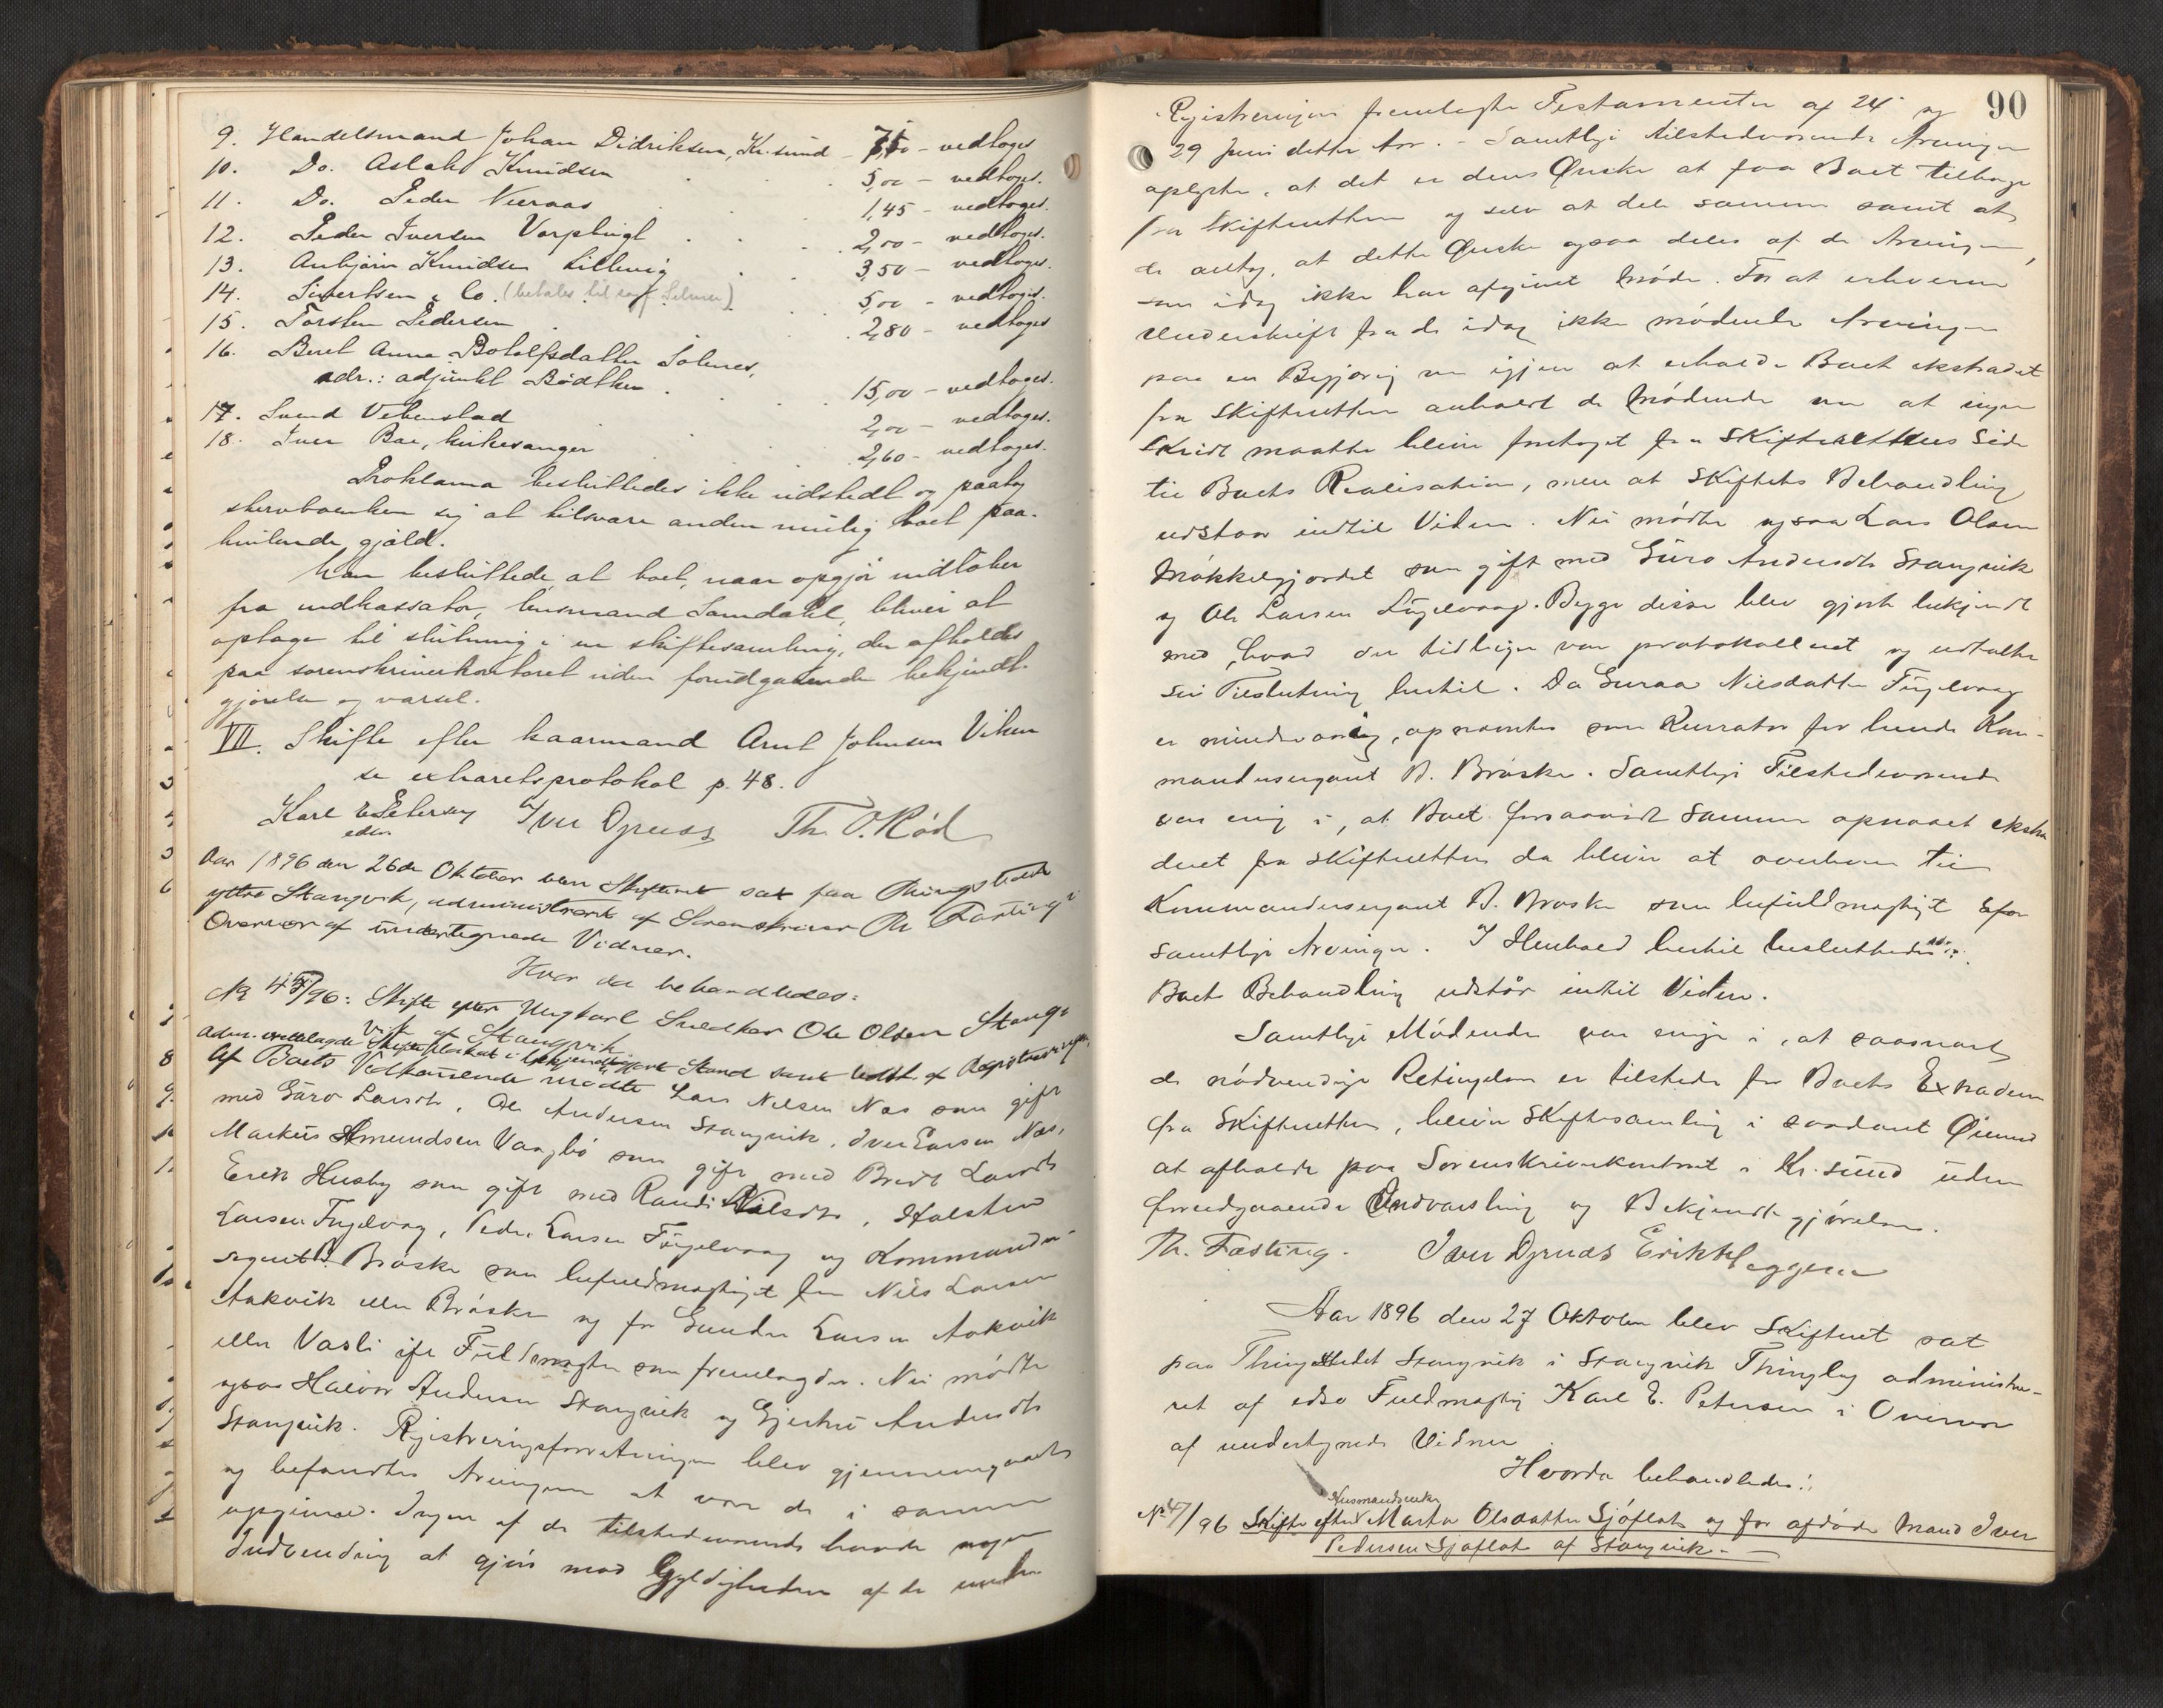 9. Handelsmand Johan Didriksen, Kr.sund - - vedtoges
10. Do. Aslak Knudsen . . 5,00 - vedtoges.
11. Do. Peder Veeraas . . 1,45 - vedtoges.
12. Peder Iversen Varphugl . . . 2,00 - vedtoges.
13. Anbjørn Knudsen Lillevig . . 3,50 - vedtoges.
14. Sivertsen & Co. (betales til sagf. ) . . 5,00 - vedtoges.
15. Torsten Pedersen . . . 2,80 - vedtoges
16. Beret Anna Botolfsdatter Solenes,
adr.: adjunkt Bødtker . . . 15,00 - vedtoges.
17. Svend Vebenstad . . 2,00 - vedtoges.
18. Iver Bae, kirkesanger . . . 2,60 - vedtoges.
Proklama besluttedes ikke udstedt og paatog
stervboenken sig at tilsvare anden mulig boet paa-
hvilende gjæld.
Man besluttede at boet, naar opgjør indløber
fra indkassator, lensmand Samdahl, bliver at
optage til slutning i en skiftesamling, der afholdes
paa sorenskriverkontoret uden forudgaaende bekjendt-
gjørelse og varsel.
VII. Skifte efter kaarmand Arnt Johnsen Viken
se extraretsprotokol p. 48.
Karl E Petersen Iver Ognæss Th. O. Rød
edsv.
Aar 1896 den 26de Oktober blev Skifteret sat paa Thingstedet
ytre Stangvik, administreret af Sorenskriver Th Fasting i
Overvær af undertegnede Vidner.
Hvor da behandledes:
No 45/96: Skifte efter Ungkarl Snedker Ole Olsen Stang-
vik af Stangvik
Adm. fremlagde Skifteplakat i bekjendtgjort Stand samt Udsk. af Registreringen.
Af Boets Vedkommende mødte Lars Nilsen Næs som gift
med Guro Larsdt., Ole Andersen Stangvik, Iver Larsen Næs,
Markus Amundsen Vaagbø som gift med Beret Larsdt
Erik Husby som gift med Randi Nilsdt., Halsten
Larsen Fugelvaag, Peder Larsen Fugelvaag og Kommandér-
sergeant B. Brøske som befuldmægtiget for Nils Larsen
Aakvik eller Brøske og for Gunder Larsen Aakvik
eller Vasli ifl Fuldmagter som fremlagdes. Nu mødte
ogsaa Halvor Andersen Stangvik og Gjertru Andersdt
Stangvik. Registreringsforretningen blev gjennemgaaet
og befandtes Arvingerne at være de i samme
opgivne. Ingen af de tilstedeværende havde nogen
Indvending at gjøre mod Gyldigheden af de under
90
Registreringen fremlagte Testamenter af 24 og
29 Juni dette Aar. - Samtlige tilstedeværende Arvinger
oplyste, at det er deres Ønske at faa Boet tilbage
fra Skifteretten og selv at dele samme samt at
de antog, at dette Ønske ogsaa deles af de Arvinger,
som idag ikke har afgivet Møde. For at erhverve
Underskrift fra de idag ikke mødende Arvinger
paa en Begjæring om igjen at erholde Boet ekstradet
fra Skifteretten anholdt de Mødende om at ingen
Skridt maatte blive foretaget fra Skifterettens Side
til Boets Realisation, men at Skiftets Behandling
udstaar indtil Videre. Nu mødte ogsaa Lars Olsen
Møkkelgjærdet som gift med Guro Andersdt Stangvik
og Ole Larsen Fugelvaag. Begge disse blev gjort bekjendt
med, hvad der tidligere var protokolleret og udtalte
sin Tilslutning hertil. Da Guraa Nilsdatter Fugelvaag
er mindreaarig, opnævntes som Kurator for hende Kom-
mandersergeant B. Brøske. Samtlige Tilstedeværende
var enig i, at Boet forsaavidt samme opnaaet ekstra-
deret fra Skifteretten da bliver at overlevere til
Kommandersergeant B. Brøske som befuldmægtiget for
samtlige Arvinger. I Henhold hertil besluttedes:
Boets Behandling udstår indtil Videre.
Samtlige Mødende var enige i, at saasnart
de nødvendige Betingelser er tilstede for Boets Extradern
fra Skifteretten, bliver Skiftesamling i saadant Øiemed
at afholde paa Sorenskriverkontoret i Kr.sund uden
forudgaaende Indvarsling og Bekjendtgjørelse.
Th. Fasting. Iver Ogmæs Erik Hæggem
Aar 1896 den 27 Oktober blev Skifteret sat
paa Thingstedet Stangvik i Stangvik Thinglag administre-
ret af edsv Fuldmægtig Karl E. Petersen i Overvær
af undertegnede Vidner
Hvorda behandledes:
Husmandsenke
No 47/96 Skifte efter Marta Olsdatter Sjøflot og før afdøde Mand Iver
Pedersen Sjøflot af Stangvik. -